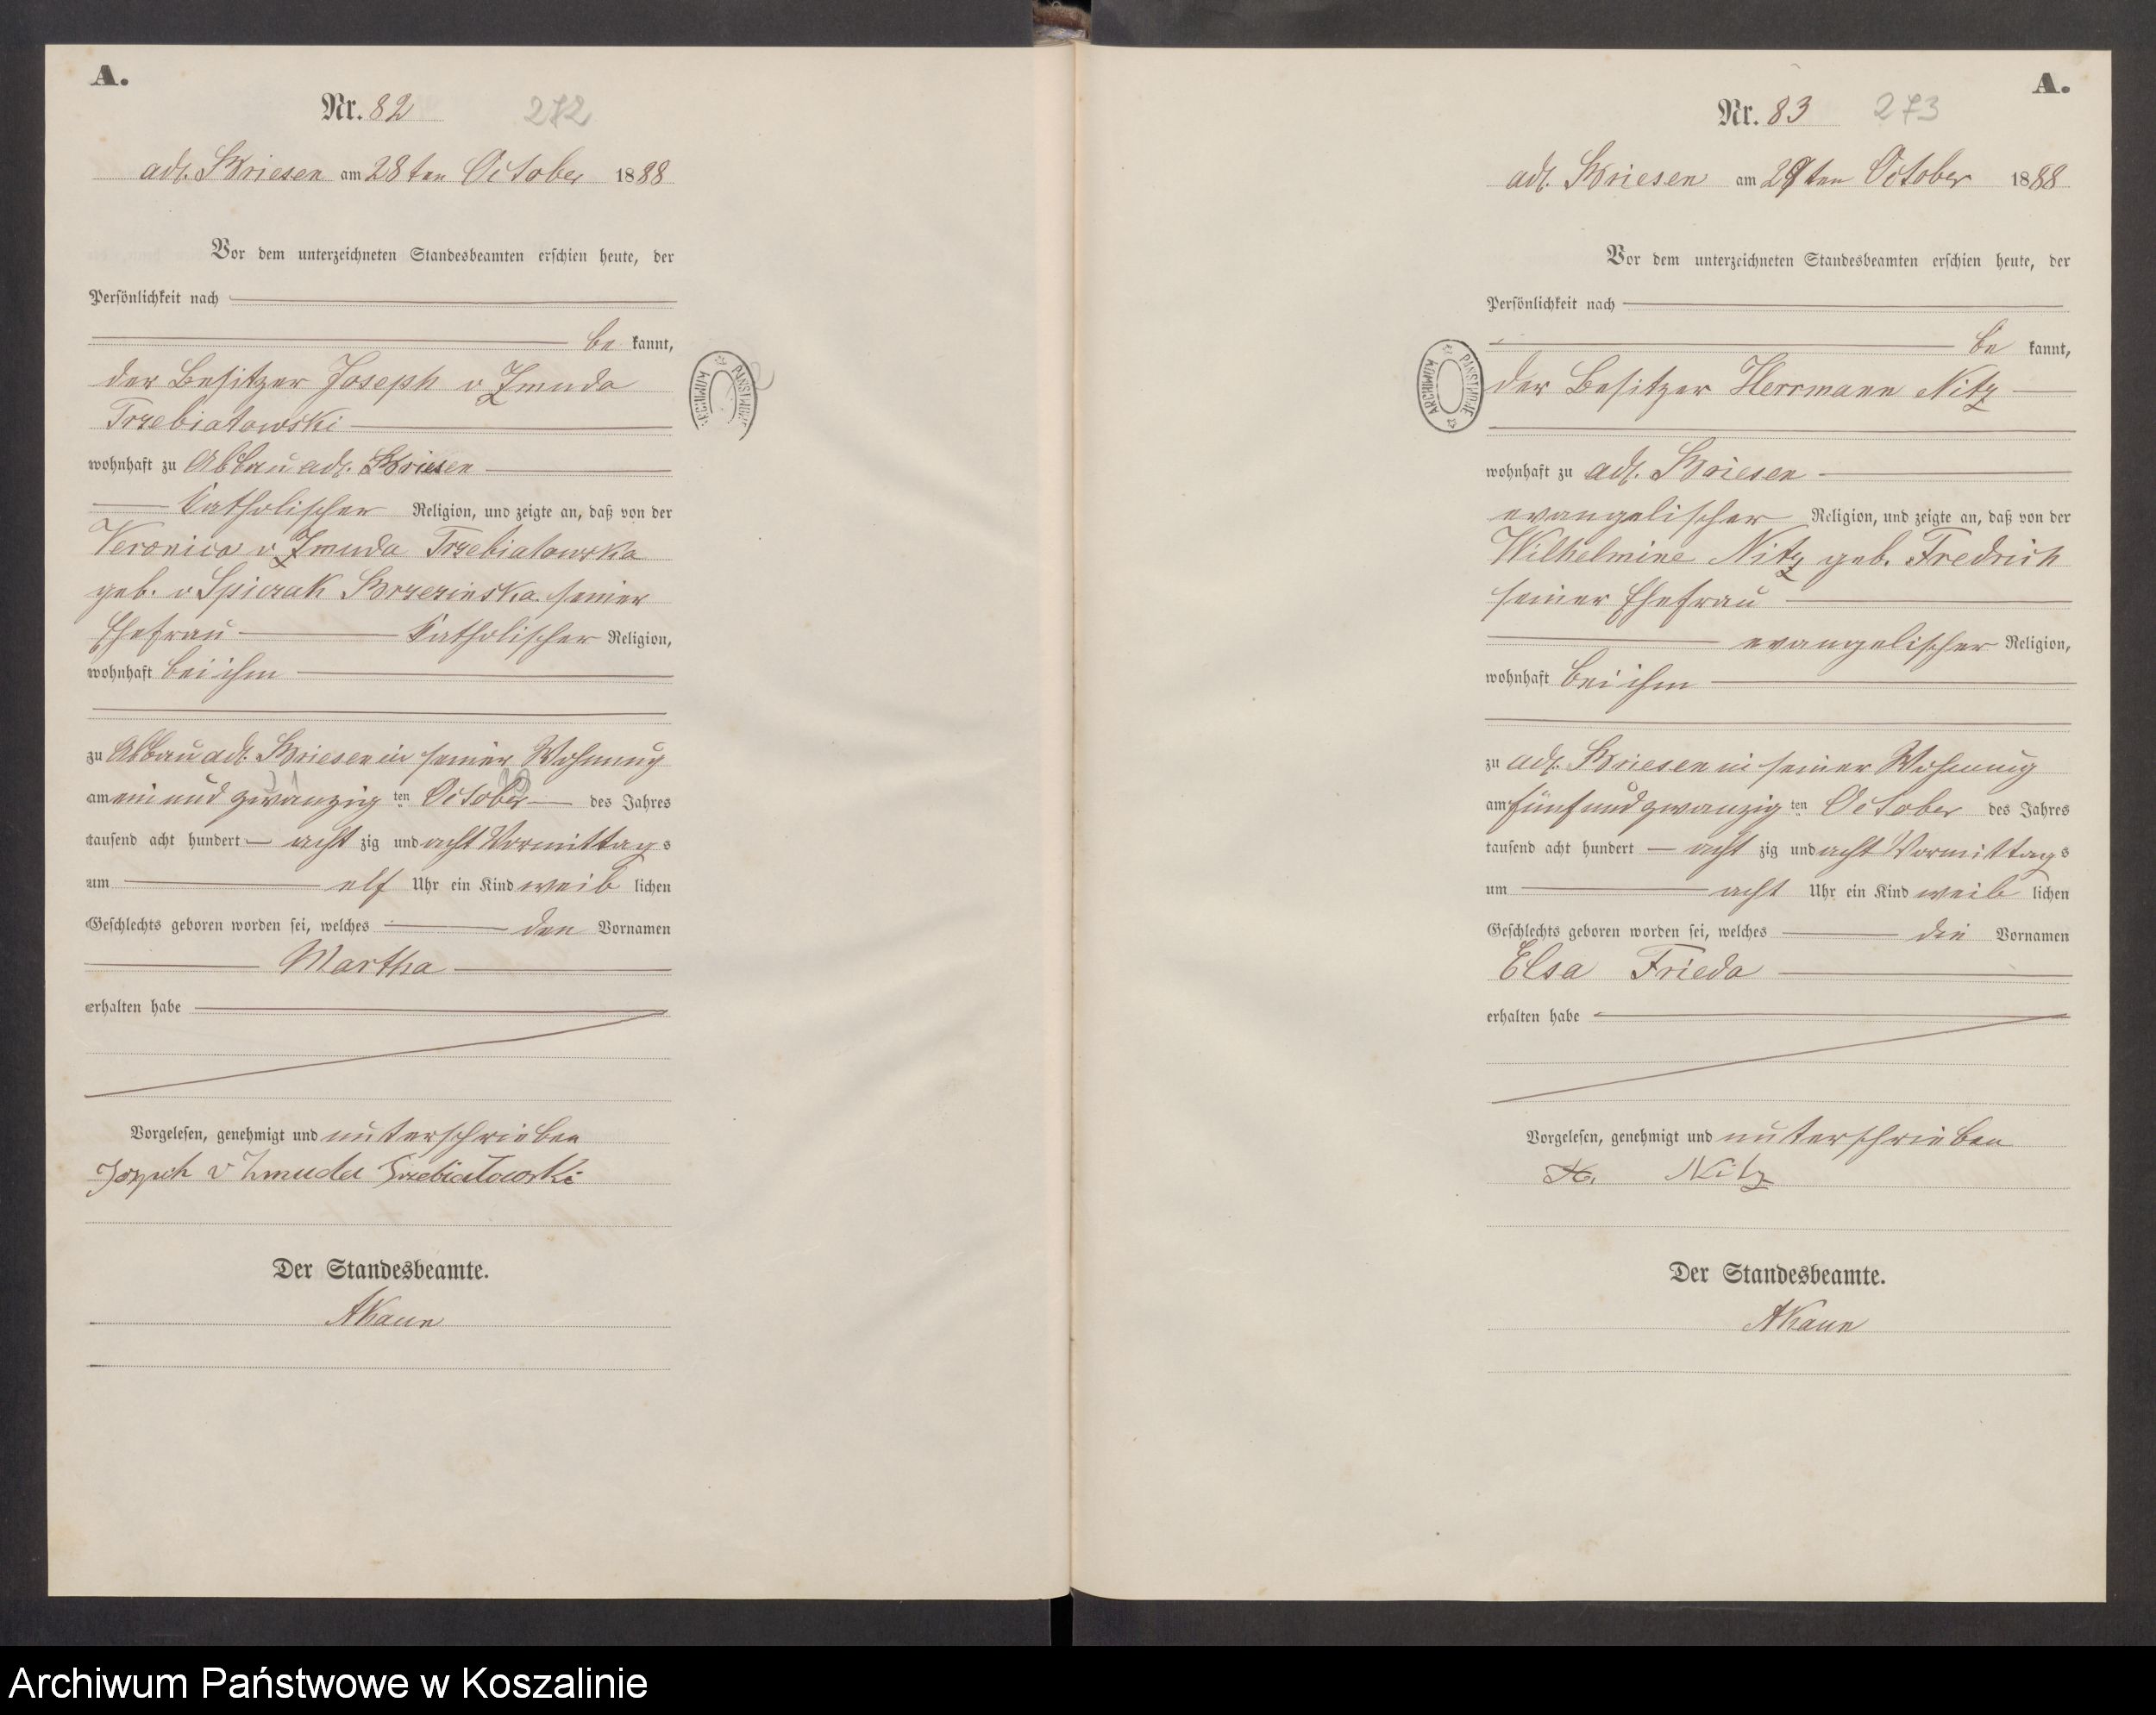 A.
Nr. 82 272
adl. Briesen am 28ten October 1888
Vor dem unterzeichneten Standesbeamten erschien heute, der
Persönlichkeit nach
be kannt,
der Besitzer Joseph v Zmuda
Trzebiatowski
wohnhaft zu Abbau adl. Briesen
katholischer Religion, und zeigte an, daß von der
Veronica v Zmuda Trzebiatowska
geb. v Spiczak Brzezinska seiner
Ehefrau katholischer Religion,
wohnhaft bei ihm
zu Abbau adl. Briesen in seiner Wohnung
am ein und zwanzig ten October des Jahres
tausend acht hundert acht zig und acht Vormittags
um elf Uhr ein Kind weib lichen
Geschlechts geboren worden sei, welches den Vornamen
Martha
erhalten habe
Vorgelesen, genehmigt und unterschrieben
Joseph v Zmuda Trzebiatowski
Der Standesbeamte.
AKaun
ARCHIWUM PAŃSTWOWE
A.
Nr. 83 273
adl. Briesen am 29ten October 1888
Vor dem unterzeichneten Standesbeamten erschien heute, der
Persönlichkeit nach
be kannt,
der Besitzer Herrmann Nitz
wohnhaft zu adl. Briesen
evangelischer Religion, und zeigte an, daß von der
Wilhelmine Nitz geb. Fredrich
seiner Ehefrau
evangelischer Religion,
wohnhaft bei ihm
zu adl. Briesen in seiner Wohnung
am fünf und zwanzig ten October des Jahres
tausend acht hundert acht zig und acht Vormittags
um acht Uhr ein Kind weib lichen
Geschlechts geboren worden sei, welches die Vornamen
Elsa Frieda
erhalten habe
Vorgelesen, genehmigt und unterschrieben
H. Nitz
Der Standesbeamte.
AKaun
ARCHIWUM PAŃSTWOWE
Archiwum Państwowe w Koszalinie